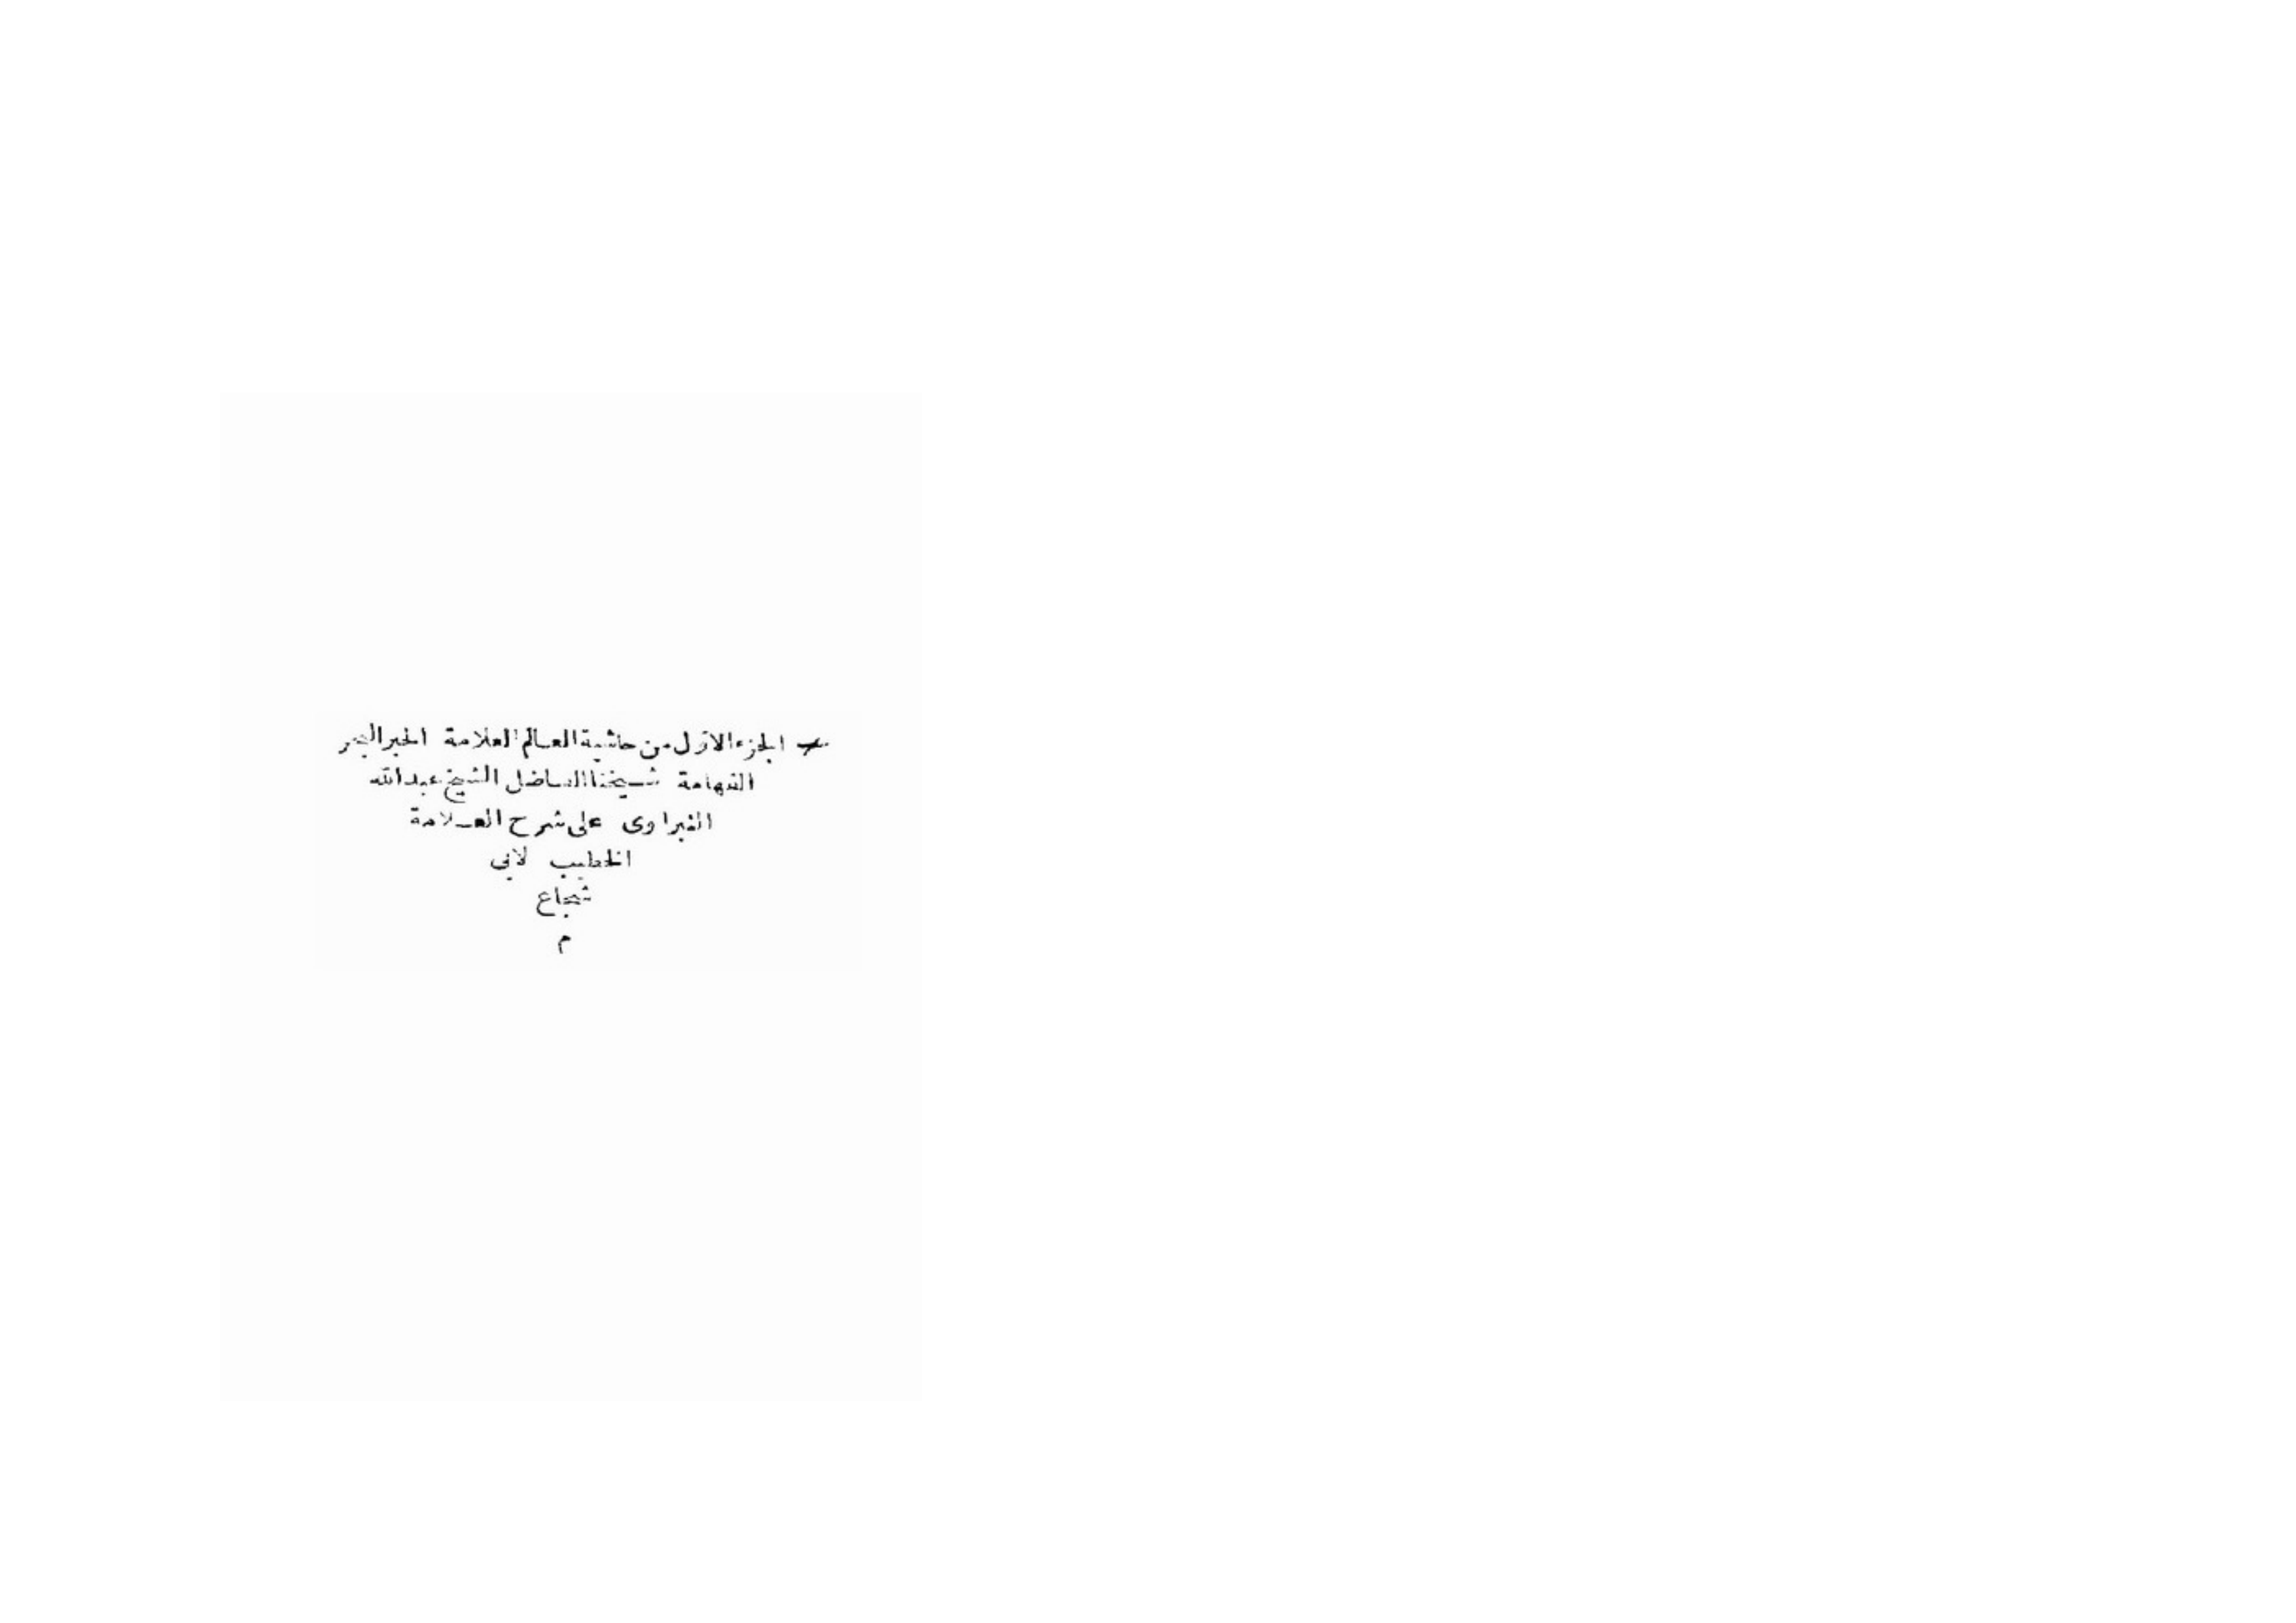 الجزء الاوّل من حاشية العالم العلامة الحبر البحر
الفهامة شيخنا الفاضل الشيخ عبد الله
النبراوى على شرح العلامة
الخطيب لابى
شجاع
م